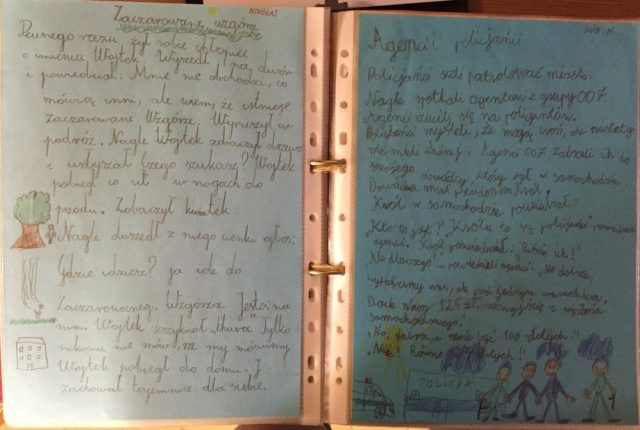 MIKOŁAJ
Zaczarowane wzgórze
Pewnego razu żył sobie chłopiec
o imieniu Wojtek Wyszedł na dwór
i powiedział: Mnie nie obchodzi, co
mówią inni, ale wiem, że istnieje
zaczarowane Wzgórze. Wyruszył w
podróż. Nagle Wojtek zobaczył drzewo
i usłyszał Czego szukasz? Wojtek
pobiegł co sił w nogach do
przodu. Zobaczył
Nagle doszedł z niego głos:
Gdzie idziesz? ja ide do
Zaczarowanego Wzgórza. Jesteś na
nim! Wojtek krzyknął, Tylko
nikomu nie mów, że my mówimy
Wojtek pobiegł do domu. I
zachował tajemnice dla siebie.
KUB. M.
Agenci i policjanci
Policjanci szli patrolować miasto.
Nagle spotkali agentów z grupy 007
Agenci rzucili się na policjantów.
myśleli, że mają broń, ale niestety
nie mieli żadnej. Agenci 007 zabrali ich do
swojego dowódcy, który był w samochodzie
Dowódca miał Król.
Król w samochodzie powiedział:
Kto to jest? "Królu to są policjanci"
agenci. Król powiedział: Puście ich!"
"No dlaczego?" – powiedzieli agenci. "No dobrze,
wypuścimy was, ale pod jednym warunkiem,
Dacie nam 125 zł, za wyjście z
samochodowego,
"No dobra, a może być 100 złotych?"
"Nie! Równo złotych"
POLICJA